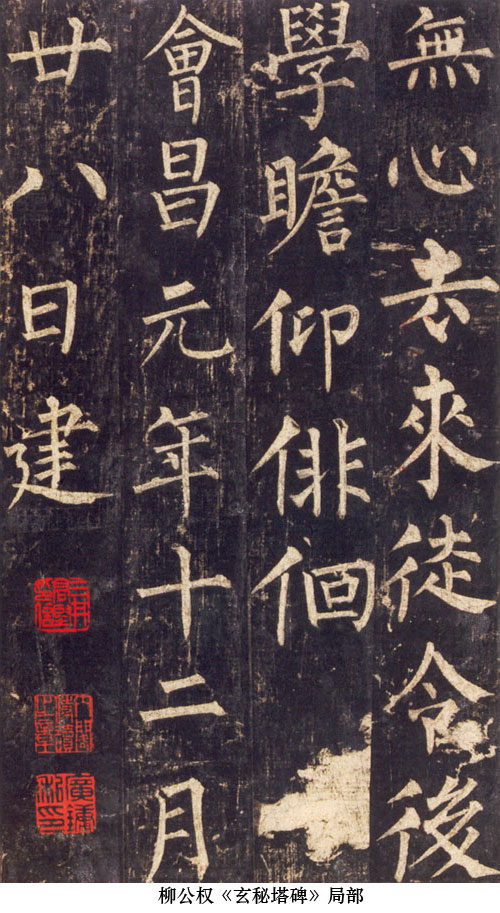 無心去來徒令後
學瞻仰俳佪
會昌元年十二月
廿八日建
柳公权《玄秘塔碑》局部